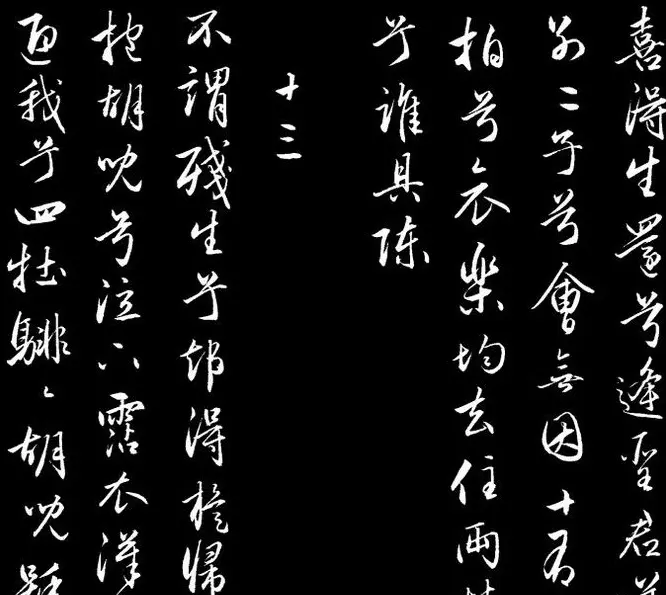 喜得生還兮逢聖君
別二子兮會無因十有
拍兮哀樂均去住兩
兮誰具陳
十三
不謂殘生兮却得旋歸
抱胡兒兮泣下霑衣漢
迎我兮四牡騑〻胡兒